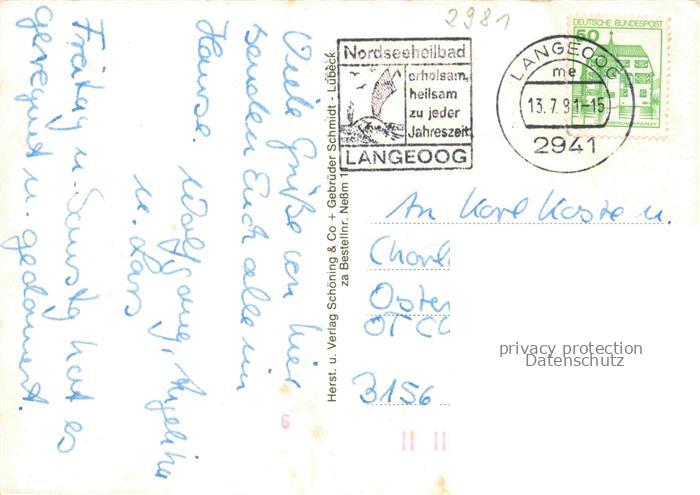 2981
DEUTSCHE BUNDESPOST
50
Nordseeheilbad
erholsam,
heilsam
zu jeder
Jahreszeit
LANGEOOG
LANGEOOG
me
13.7.81-15
2941
Viele Grüße von hier
senden Euch alle im
Hause. Wolfgang, Angelika
u. Lars
Freitag u. Samstg hat es
geregnet u. gedonnert.
Herst. u. Verlag Schöning & Co + Gebrüder Schmidt - Lübeck
za Bestellnr. Neßm 1
An Karl Koste u.
Charl
Oster
OT
3156
privacy protection
Datenschutz